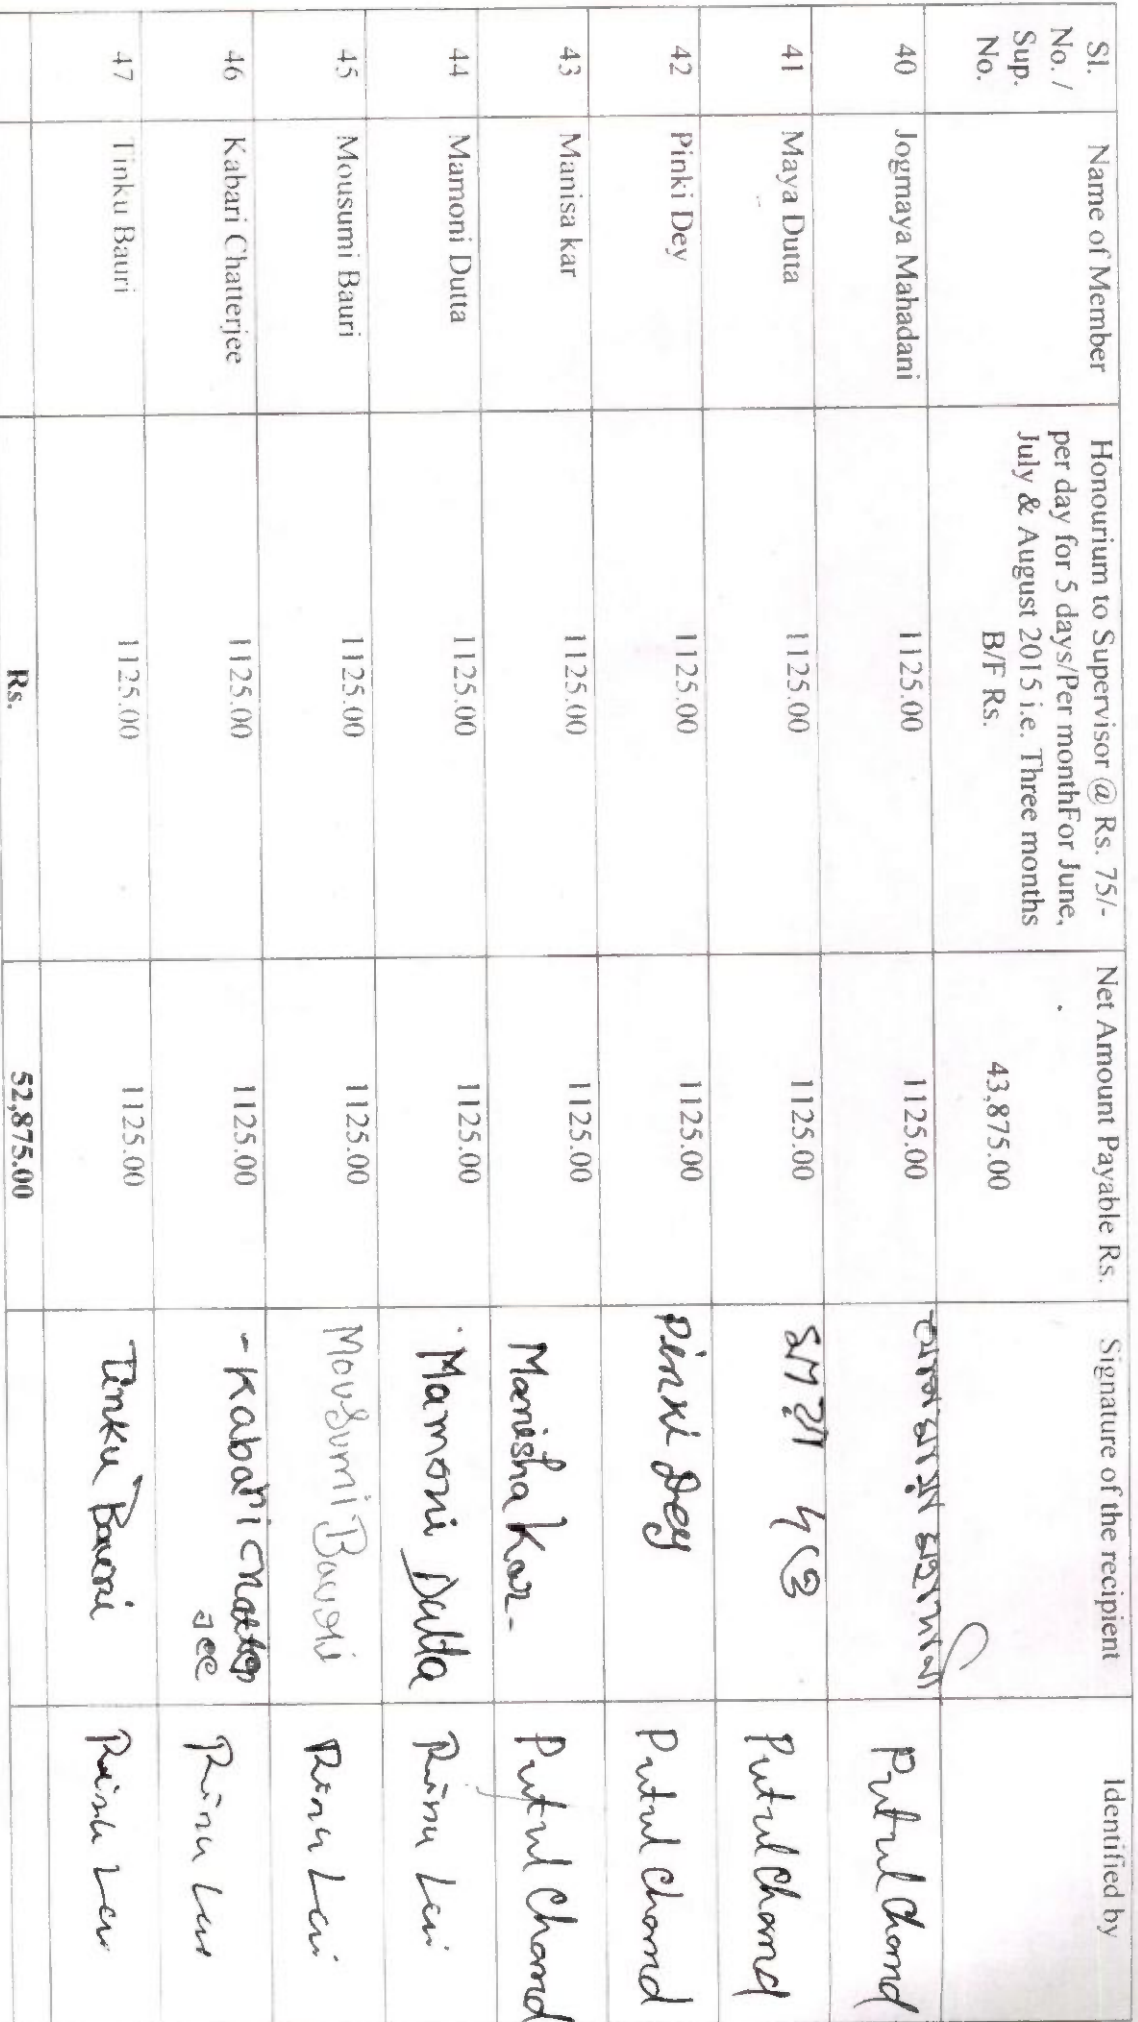 Sl. No. / Sup. No. Name of Member Honourium to Supervisor @ Rs. 75/- per day for 5 days/Per monthFor June, July & August 2015 i.e. Three months Net Amount Payable Rs. Signature of the recipient Identified by
B/F Rs. 43,875.00
40 Jogmaya Mahadani 1125.00 1125.00 Putul Chand
41 Maya Dutta 1125.00 1125.00 Putul Chand
42 Pinki Dey 1125.00 1125.00 Pinki Dey Putul Chand
43 Manisa kar 1125.00 1125.00 Manisha Kar- Putul Chand
44 Mamoni Dutta 1125.00 1125.00 Mamoni Dutta Rinu
45 Mousumi Bauri 1125.00 1125.00 Mousumi Bauri Rinu
46 Kabari Chatterjee 1125.00 1125.00 - Kabari Chatterjee Rinu
47 Tinku Bauri 1125.00 1125.00 Tinku Baueri Rinu
Rs. 52,875.00